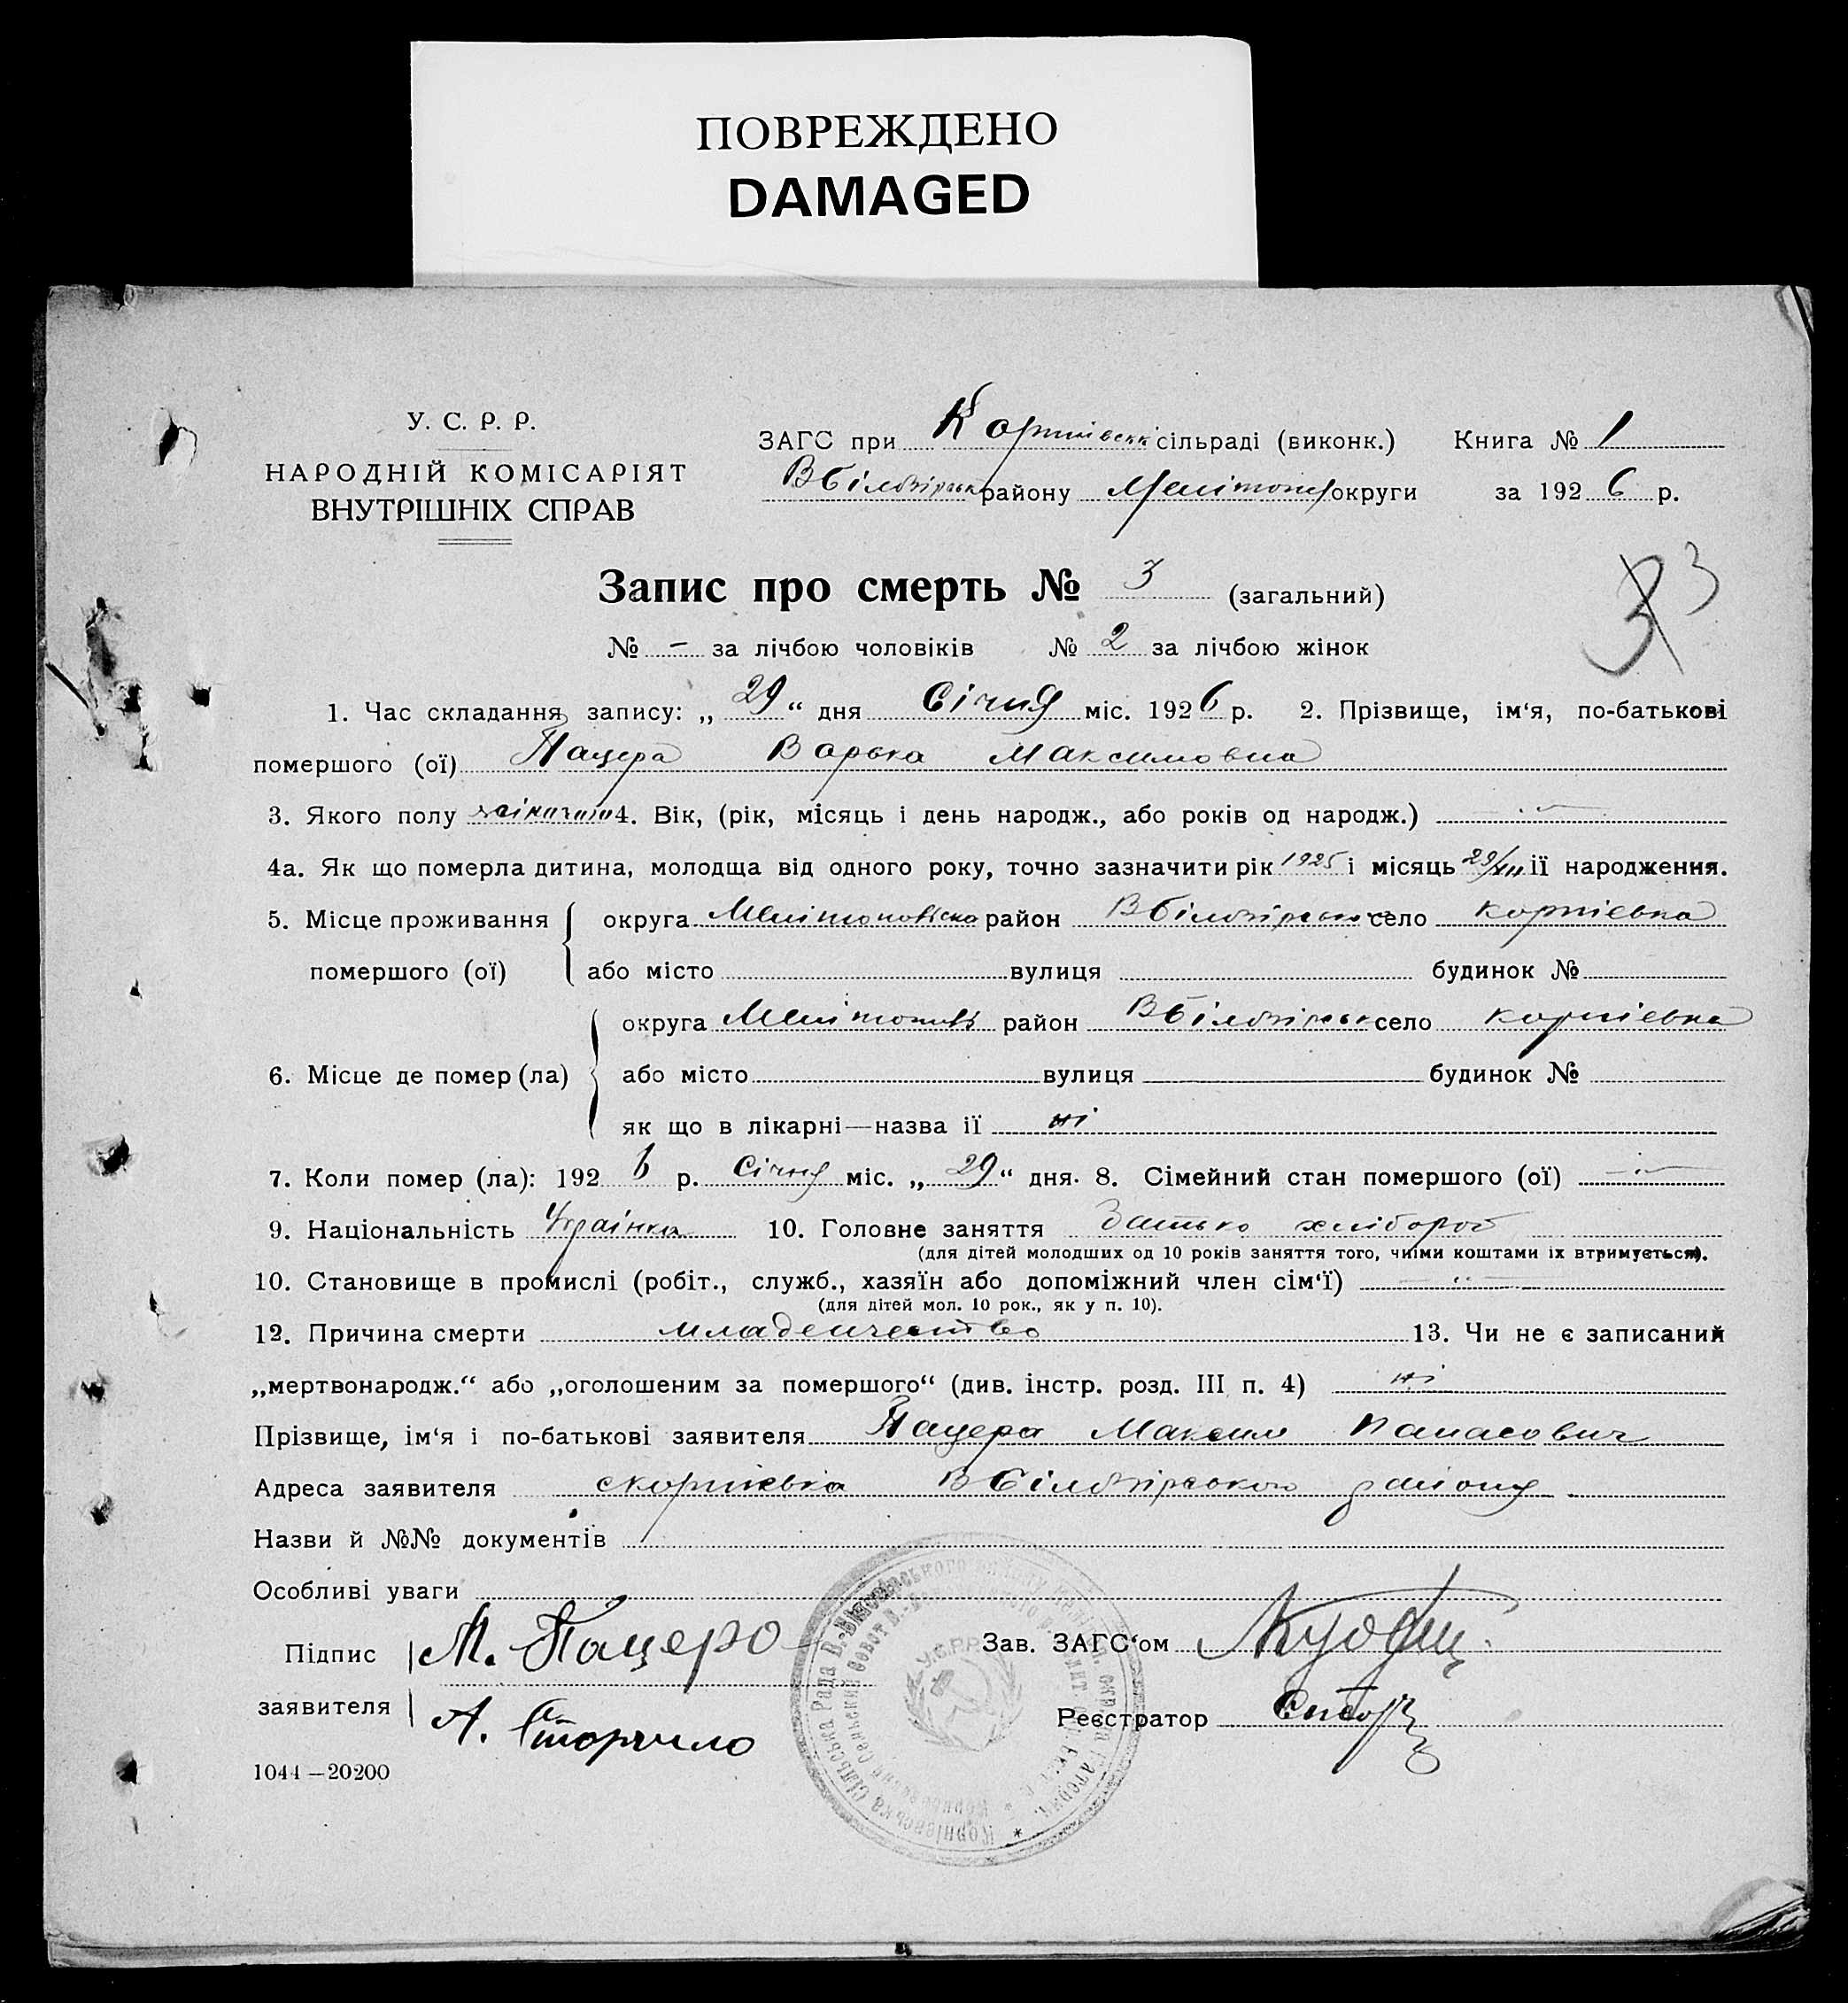 ПОВРЕЖДЕНО
DAMAGED
У. С. Р. Р.
НАРОДНІЙ КОМІСАРІЯТ
ВНУТРІШНІХ СПРАВ
ЗАГС при сільраді (виконк.) Книга № 1
району Мелітоп округи за 1926 р.
Запис про смерть № 3 (загальний)
3 3
№ - за лічбою чоловіків № 2 за лічбою жінок
1. Час складання запису: „ 29 “ дня Січня міс. 1926 р. 2. Прізвище, ім‘я, по-батькові
помершого (ої) Пацера Варька Максимовна
3. Якого полу жіночого 4. Вік, (рік, місяць і день народж., або років од народж.)
4а. Як що померла дитина, молодща від одного року, точно зазначити рік 1925 і місяць 29/XII її народження.
5. Місце проживання округа Мелітоповсько район ВБілозірсько село Корніевка
помершого (ої) або місто вулиця будинок №
округа район ВБілозірськ село Корніевка
6. Місце де помер (ла) або місто вулиця будинок №
як що в лікарні—назва її ні
7. Коли помер (ла): 1926 р. Січня міс. „ 29 “ дня. 8. Сімейний стан помершого (ої)
9. Національність Українка 10. Головне заняття Батько хлібороб
(для дітей молодших од 10 років заняття того, чиїми коштами їх втримується).
10. Становище в промислі (робіт., служб., хазяїн або допоміжний член сім‘ї)
(для дітей мол. 10 рок., як у п. 10).
12. Причина смерти младенчество 13. Чи не є записаний
„мертвонародж.“ або „оголошеним за помершого“ (див. інстр. розд. III п. 4) ні
Прізвище, ім‘я і по-батькові заявителя Пацера Максим Панасович
Адреса заявителя скорніевка ВБілозірського району
Назви й №№ документів
Особливі уваги
Підпис М. Пацеро Зав. ЗАГС‘ом
заявителя А. Сторчило Реєстратор
У.С.Р.Р.
Корніевська Сільська Рада В.-Білозірського району
1044—20200